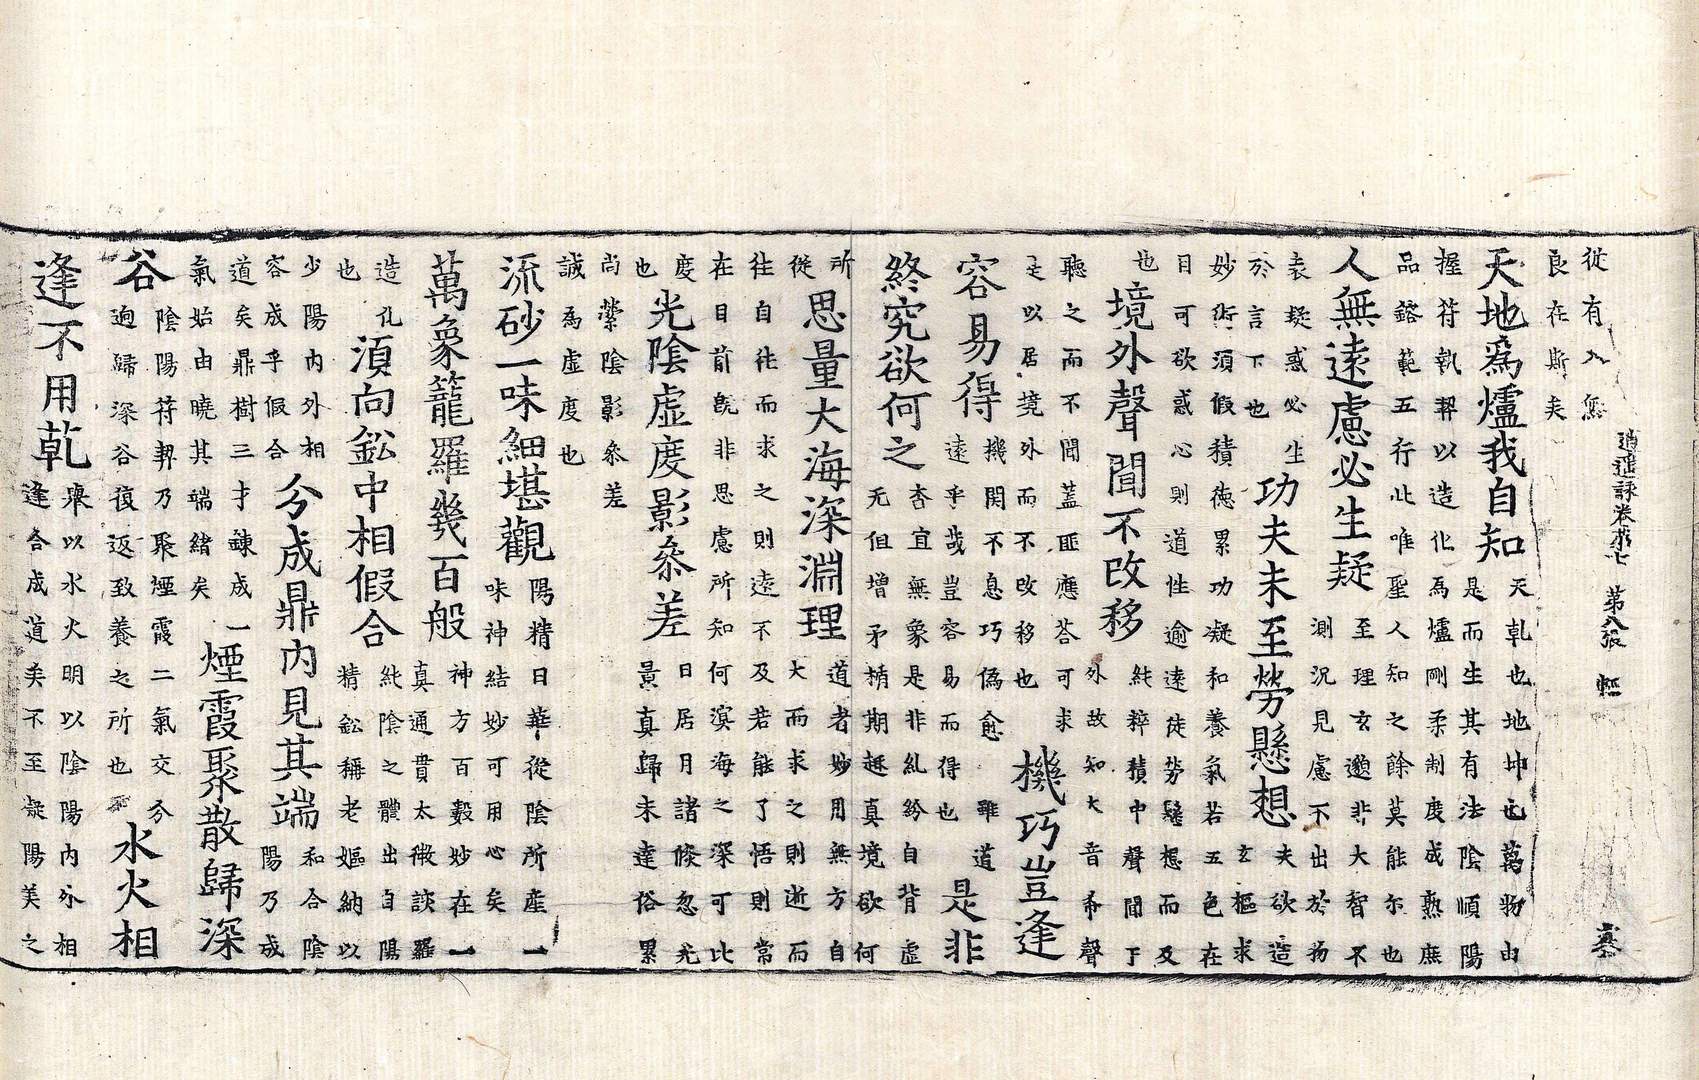 逍遥詠卷第七　第八張　輕
從有入無
良在斯矣
天地爲爐我自知
天乹也地坤也萬物由
是而生其有法陰順陽
握符執契以造化爲爐剛柔制度成熟庶
品鎔範五行此唯聖人知之餘莫能尔也
人無遠慮必生疑
至理玄邈非大智不
測況見慮不出於
疑惑必生
於言下也
功夫未至勞懸想
夫欲造
玄樞求
妙術須假積德累功凝和養氣若五色在
目可欲惑心則道性逾逺徒勞懸想而及
也
境外聲聞不改移
純粹積中聲聞于
外故知大音希聲
聽之而不聞蓋匪應荅可求
是以居境外而不改移也
機巧豈逢
容易得
機関不息巧偽愈雖道
遠乎哉豈容易而得也
是非
終究欲何之
杳宜無象是非糺紛自背虛
无但增矛楯期趣真境欲何
所
從
思量大海深淵理
道者妙用無方自
大而求之則逝而
往自往而求之則逺不及若能了悟則常
在目前旣非思慮所知何溟海之深可比
度
也
光陰虛度影叅差
日居月諸倏忽光
景真歸未達俗累
尚縈陰影叅差
誠爲虛度也
流砂一味細堪觀
陽精日華從陰所產一
味神結妙可用心矣
萬象籠羅幾百般
神方百數妙在一
真通貫太微談羅
造化
也
湏向鈆中相假合
純陰之體出自陽
精鈆稱老嫗納以
少陽内外相
容成乎假合
分成鼎内見其端
和合陰
陽乃成
道矣鼎樹三才鍊成一
氣始由曉其端緒矣
煙霞聚散歸深
谷
陰陽符契乃聚煙霞二氣交分
迴歸深谷復返致養之所也
水火相
逢不用乹
舉以水火明以陰陽内外相
逢合成道矣不至凝陽美之